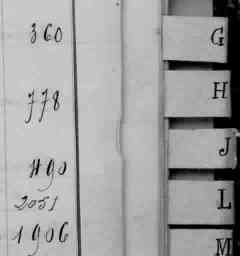 360 G
778 H
J
1190
2051 L
1906 M